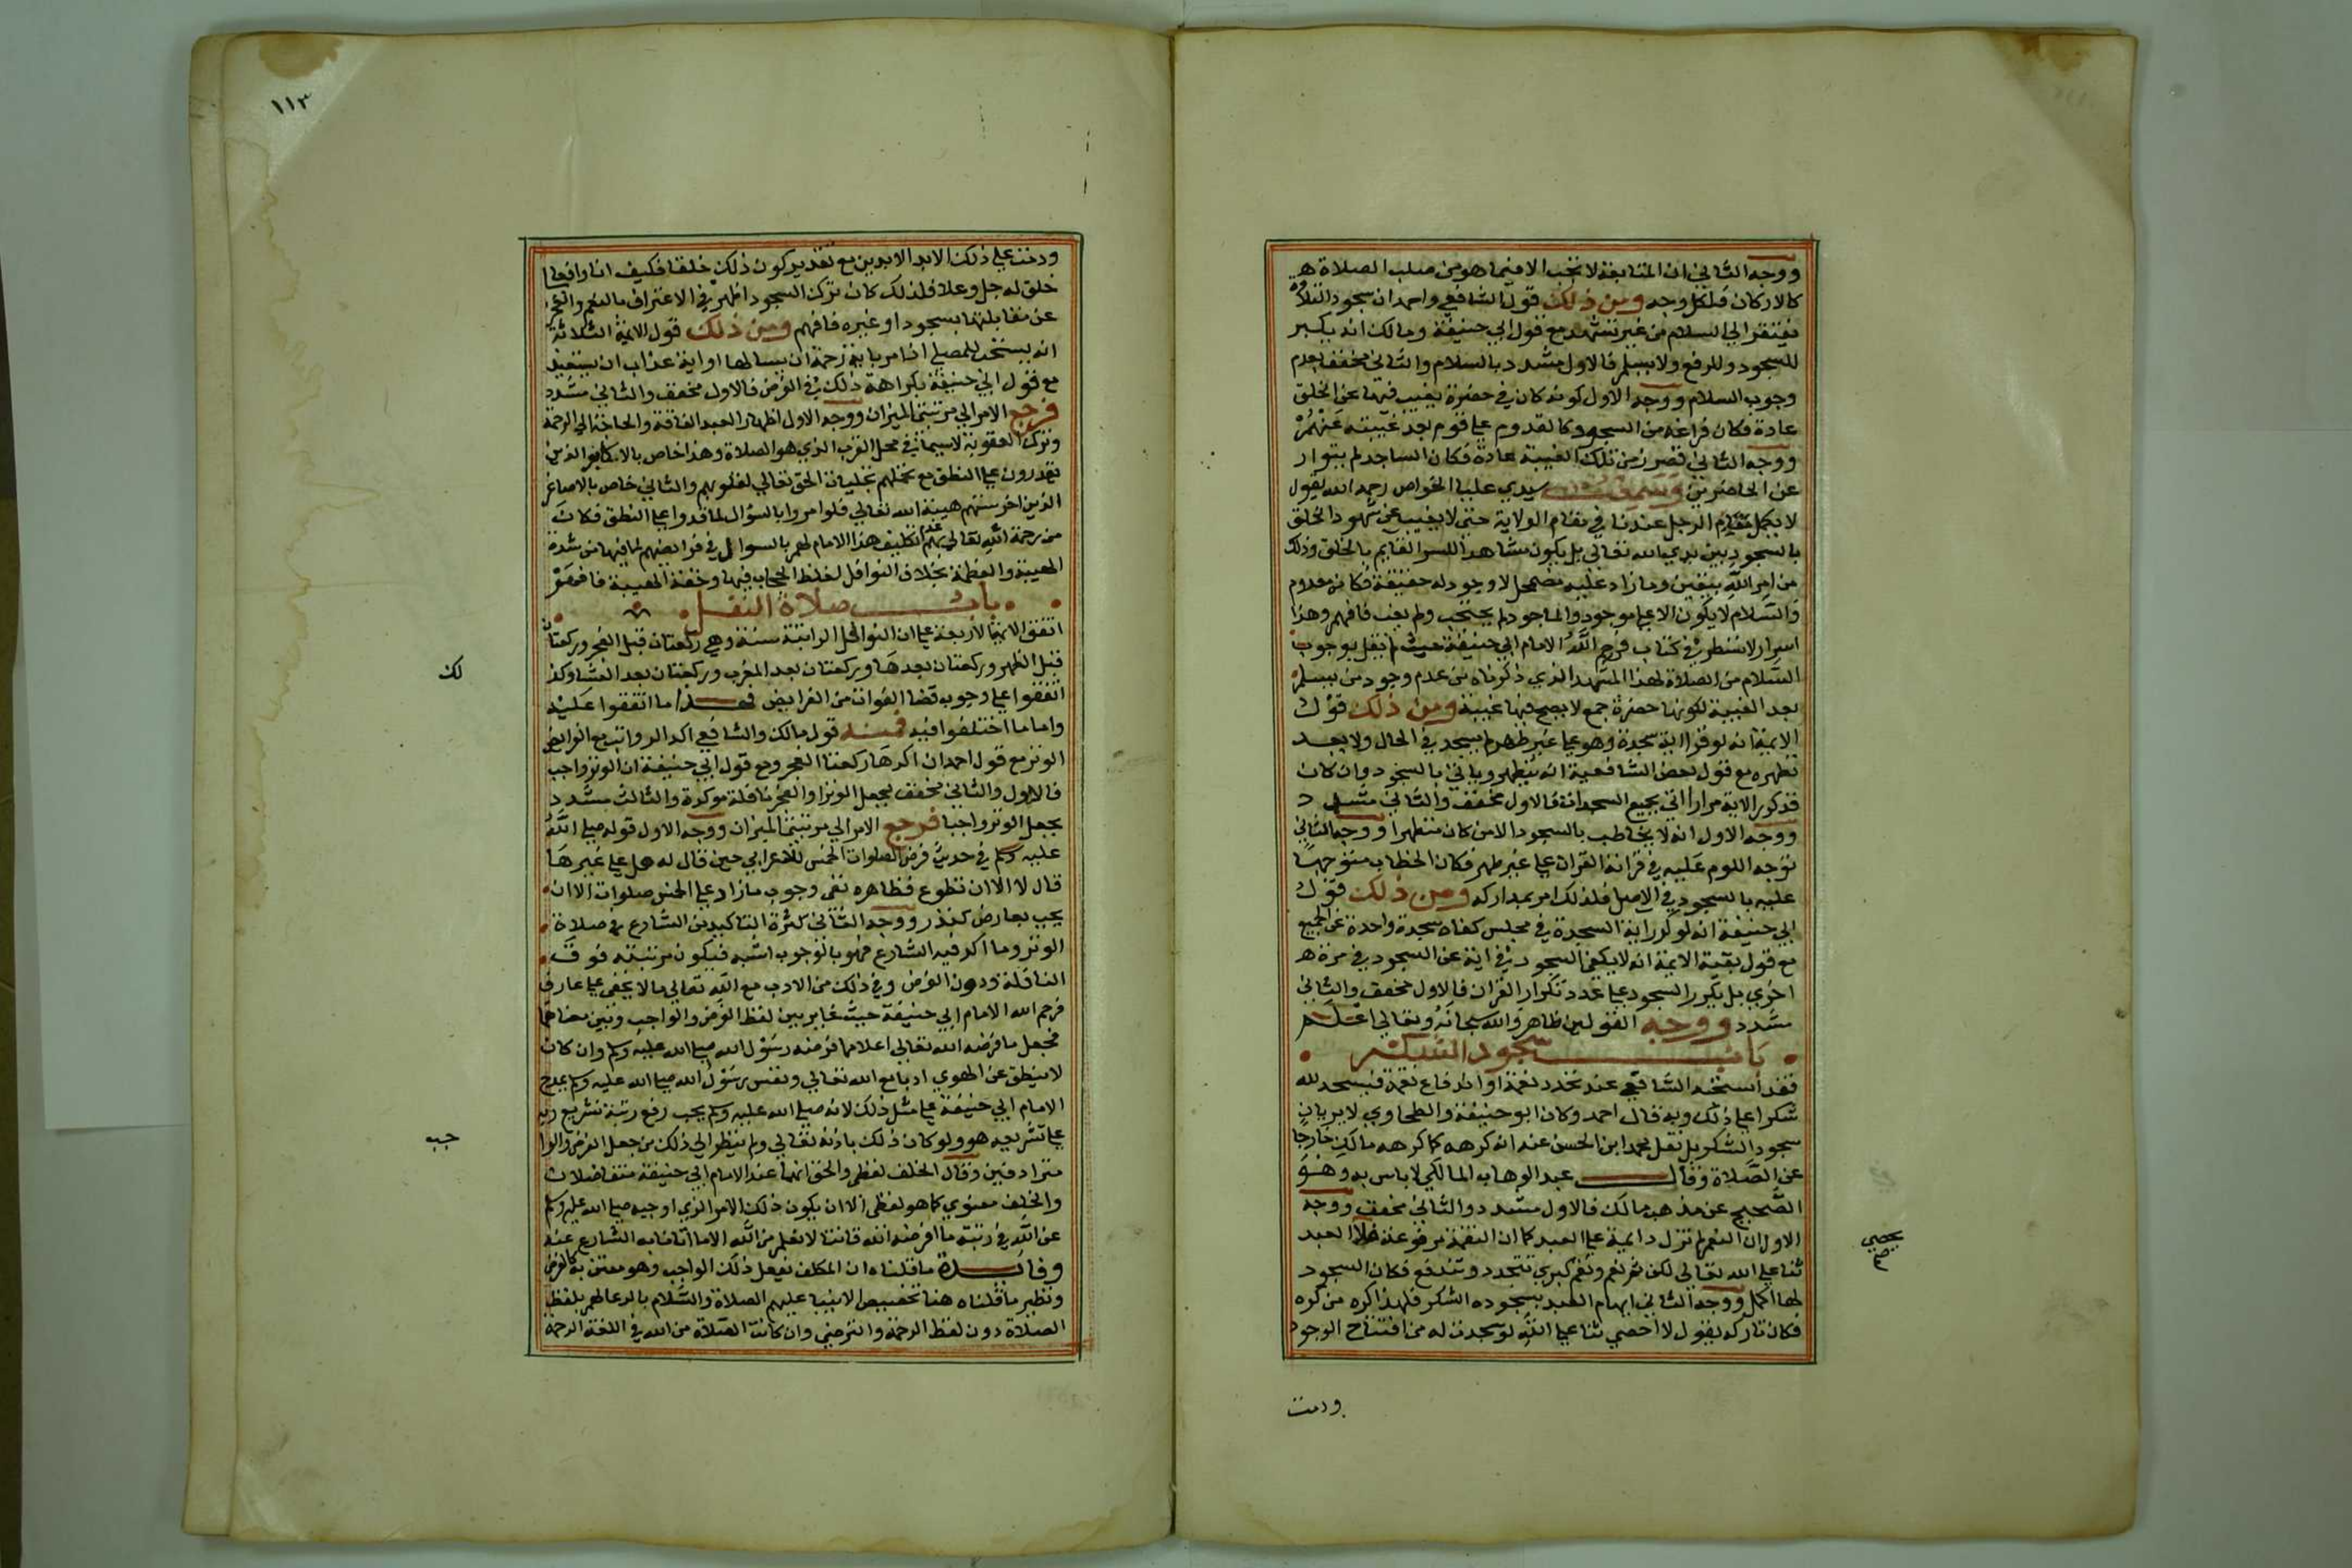 ووجه الثاني ان المتابعة لا تجب الا فيما هو من صلب الصلاة
كالاركان فلكل وجه ومن ذلك قول الشافعي واحمد ان سجود التلاوة
يفتقر الي السلام من غير تشهد مع قول ابي حنيفة ومالك انه يكبر
للسجود وللرفع ولا يسلم فالاول مشدد بالسلام والثاني مخفف بعدم
وجوب السلام ووجه الاول كونه كان في حضرة يغيب فيها عن الخلق
عادة فكان فراغه من السجود كالقدوم علي قوم بعد غيبته عنهم
ووجه الثاني قصر زمن تلك الغيبة عادة فكان الساجد لم يتوار
عن الحاضرين وسمعت سيدي عليا الخواص رحمه الله يقول
لا يكمل مقام الرجل عندنا في مقام الولاية حتي لا يغيب عن شهود الخلق
بالسجود بين يدي الله تعالي بل يكون مشاهدا للسر القايم بالخلق وذلك
من امر الله بيقين وما زاد عليه مضمحل لا وجود له حقيقة فكانه معدوم
والسلام لا يكون الا علي موجود والماجود لم يحتجب ولم يغب فافهم وهذا
اسرار لا تسطر في كتاب فرحم الله الامام ابي حنيفة حيث لم يقل بوجوب
السلام من الصلاة لهذا المشهد الذي ذكرناه من عدم وجود من يسلم
بعد الغيبة لكونها حضرة جمع لا يصح فيها غيبة ومن ذلك قول
الايمة انه لو قرا اية سجدة وهو علي غير طهر لم يسجد في الحال ولا بعد
تطهره مع قول بعض الشافعية انه يتطهر وياتي بالسجود وان كان
قد كرر الاية مرارا اتي بجميع السجدات فالاول مخفف والثاني مشدد
ووجه الاول انه لا يخاطب بالسجود الا من كان متطهرا ووجه الثاني
توجه اللوم عليه في قراءة القران علي غير طهر فكان الخطاب متوجها
عليه بالسجود في الاصل فلذلك امر بمداركه ومن ذلك قول
ابي حنيفة انه لو كرر اية السجدة في مجلس كفاه سجدة واحدة عن الجميع
مع قول بقية الايمة انه لا يكفي السجود في اية عن السجود في مرة
اخري بل يكرر السجود علي عدد تكرار القران فالاول مخفف والثاني
مشدد ووجه القولين ظاهر والله سبحانه وتعالي اعلم
باب سجود الشكر
فقد استحبه الشافعي عند تجدد نعمة او اندفاع نقمة فيسجد لله
شكرا علي ذلك وبه قال احمد وكان ابو حنيفة والطحاوي لا يريان
سجود الشكر بل نقل محمد ابن الحسن عنه انه كرهه كما كرهه مالك خارجا
عن الصلاة وقال عبد الوهاب المالكي لا باس به وهو
الصحيح عن مذهب مالك فالاول مشدد والثاني مخفف ووجه
الاول ان النعم لم تزل دايمة علي العبد كما ان النقمة مرفوعة
ثنا علي الله تعالي لكن ثم نعم ونقم كبري تتجدد وتندفع فكان السجود
لها اكمل ووجه الثاني ايهام العبد بسجوده الشكر فلهذا كره من كره
فكان تاركه يقول لا احصي ثنا علي الله لو سجدت له من افتتاح الوجود
يحصي
ودمت
١١٣
ودمت علي ذلك الابد الابدين مع تقدير كون ذلك خلقا فكيف انا وافعالي
خلق له جل وعلا فلذلك كان ترك السجود اظهر في الاعتراف بالنعم والعجز
عن مقابلتها بسجود او غيره فافهم ومن ذلك قول الايمة الثلاثة
انه يستحب للمصلي اذا مر باية رحمة ان يسالها او اية عذاب ان يستعيذ
مع قول ابي حنيفة بكراهة ذلك في الفرض فالاول مخفف والثاني مشدد
فرجع الامر الي مرتبتي الميزان ووجه الاول اظهار العبد الفاقة والحاجة الي الرحمة
وترك العقوبة لا سيما في محل القرب الذي هو الصلاة وهذا خاص بالاكابر الذين
يقدرون علي النطق مع تحملهم تجليات الحق تعالي لقلوبهم والثاني خاص بالاصاغر
الذين اخرستهم هيبة الله تعالي فلو امروا بالسؤال لما قدروا علي النطق فكان
من رحمة الله تعالي بهم عدم تكليف هذا الامام لهم بالسوال في فرايضهم لما فيها من شدة
الهيبة والعظمة بخلاف النوافل لغلظ الحجاب فيها وخفة الهيبة فافهم
باب صلاة النفل
اتفق الايمة الاربعة علي ان النوافل الراتبة سنة وهي ركعتان قبل الفجر وركعتان
قبل الظهر وركعتان بعدها وركعتان بعد المغرب وركعتان بعد العشا وكذ
لك
اتفقوا علي وجوب قضا الفوائت من الفرايض فهذا ما اتفقوا عليه
واما ما اختلفوا فيه فمنه قول مالك والشافعي اكد الرواتب مع الفرايض
الوتر مع قول احمد ان اكدها ركعتا الفجر ومع قول ابي حنيفة ان الوتر واجب
فالاول والثاني مخفف بجعل الوتر او الفجر نافلة موكدة والثالث مشدد
بجعل الوتر واجبا فرجع الامر الي مرتبتي الميزان ووجه الاول قوله صلي الله
عليه وسلم في حديث فرض الصلوات الخمس للاعرابي حين قال له هل علي غيرها
قال لا الا ان تطوع فظاهره نفي وجوب ما زاد علي الخمس صلوات الا ان
يجب بعارض كنذر ووجه الثاني كثرة التاكيد من الشارع في صلاة
الوتر وما اكد فيه الشارع فهو بالوجوب اشبه فيكون مرتبته فوق
النافلة ودون الفرض وفي ذلك من الادب مع الله تعالي ما لا يخفي علي عارف
فرحم الله الامام ابي حنيفة حيث غاير بين لفظ الفرض والواجب وبين معناهما
فجعل ما فرضه الله تعالي اعلا مما فرضه رسول الله صلي الله عليه وسلم وان كان
لا ينطق عن الهوي ادبا مع الله تعالي ونفس رسول الله صلي الله عليه وسلم يمدح
الامام ابي حنيفة علي مثل ذلك لانه صلي الله عليه وسلم يحب رفع رتبة تشريع ربه
علي تشريعه هو ولو كان ذلك باذنه تعالي ولم ينظر الي ذلك من جعل الفرض والوا
جب
مترادفين وقال الخلف لفظي والحق انهما عند الامام ابي حنيفة متفاضلان
والخلف معنوي كما هو لفظي الا ان يكون ذلك الامر الذي اوجبه صلي الله عليه وسلم
عن الله في رتبة ما افرضه الله فاننا لا نعلم من الله الا ما اتانا به الشارع عنه
وفائدة ما قلناه ان المكلف يفعل ذلك الواجب وهو معتن به كالفرض
ونظير ما قلناه هنا تخصيص الانبيا عليهم الصلاة والسلام بالدعا لهم بلفظ
الصلاة دون لفظ الرحمة والترضي وان كانت الصلاة من الله في اللغة الرحمة